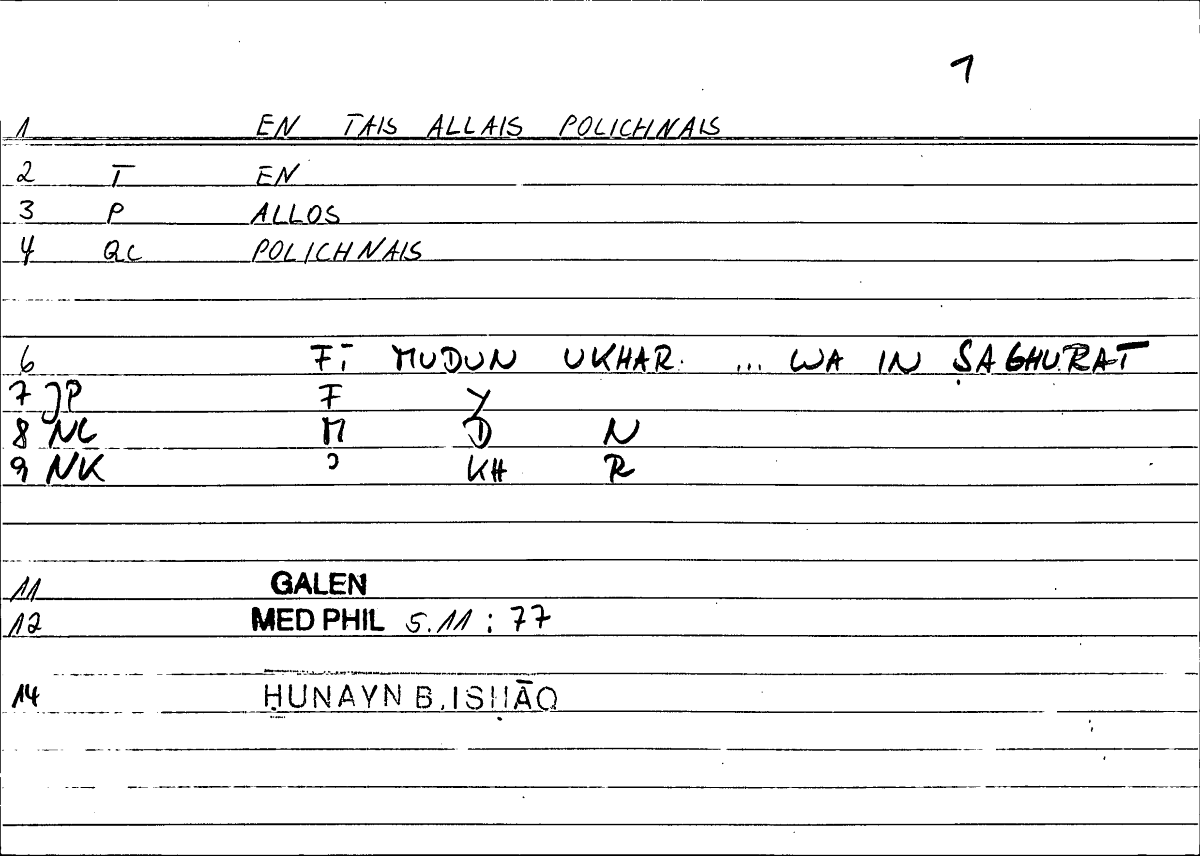 1
1 EN TAIS ALLAIS POLICHNAIS
2 T EN
3 P ALLOS
4 QC POLICHNAIS
6 FĪ MUDUN UKHAR ... WA IN ṢAGHURAT
7 JP F Y
8 NC M D N
9 NK ʾ KH R
11 GALEN
12 MED PHIL 5.11 : 77
14 ḤUNAYN B. ISḤĀQ